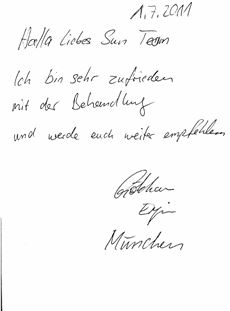 1.7.2011
Hallo Liebes Sun Team
Ich bin sehr zufrieden
mit der Behandlung
und werde euch weiter empfehlen
Gökhan
München